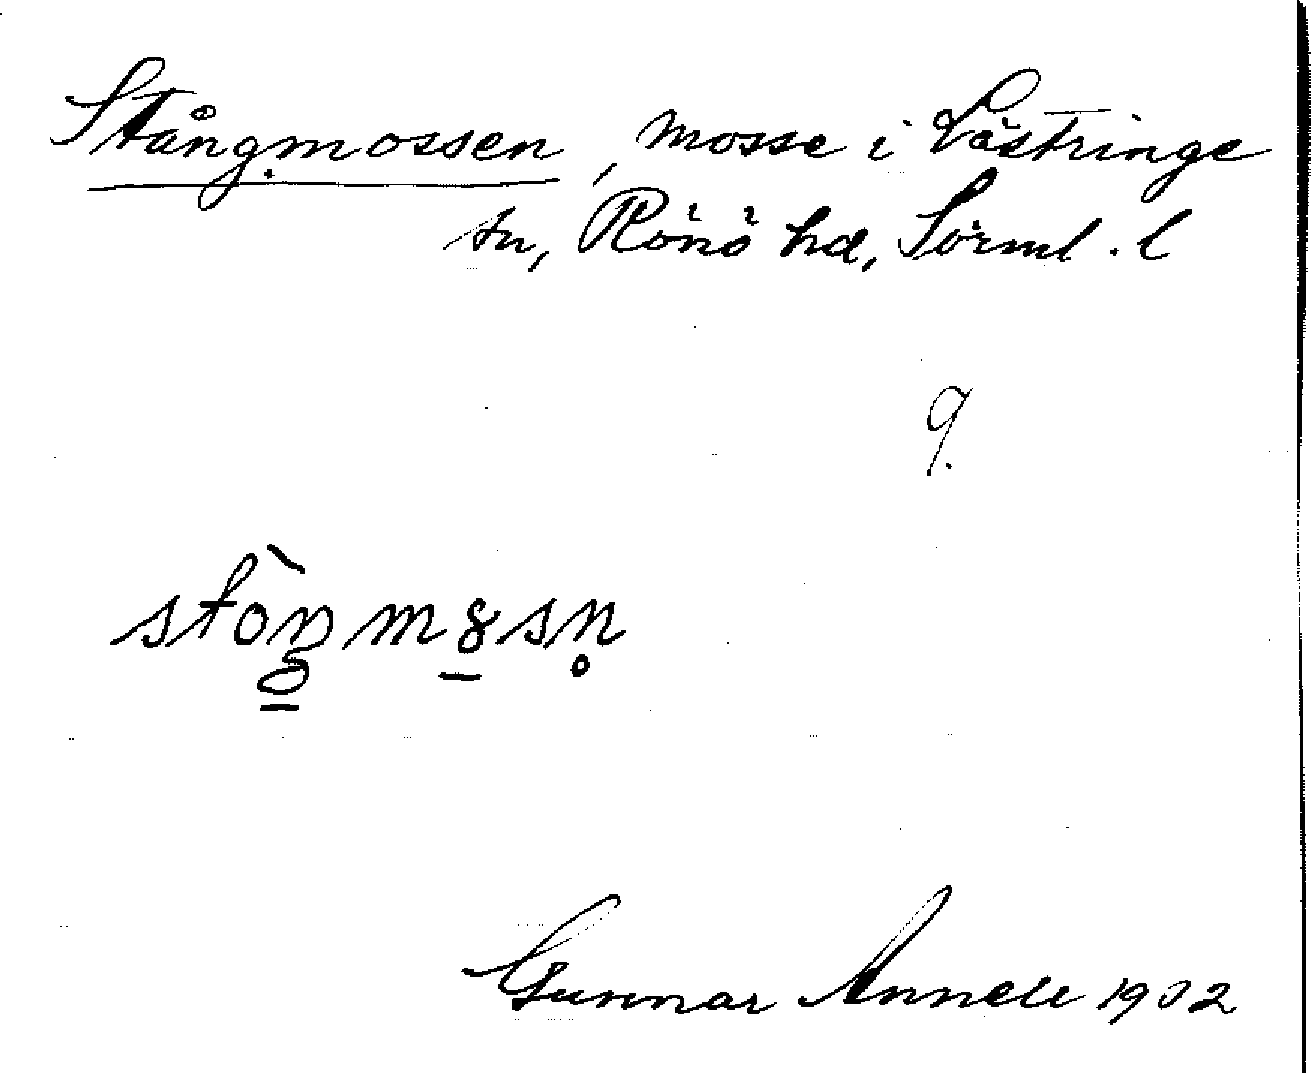 Stångmossen, mosse i Lästringe
sn, Rönö hd, Sörml. l
9.
Gunnar Annell 1902